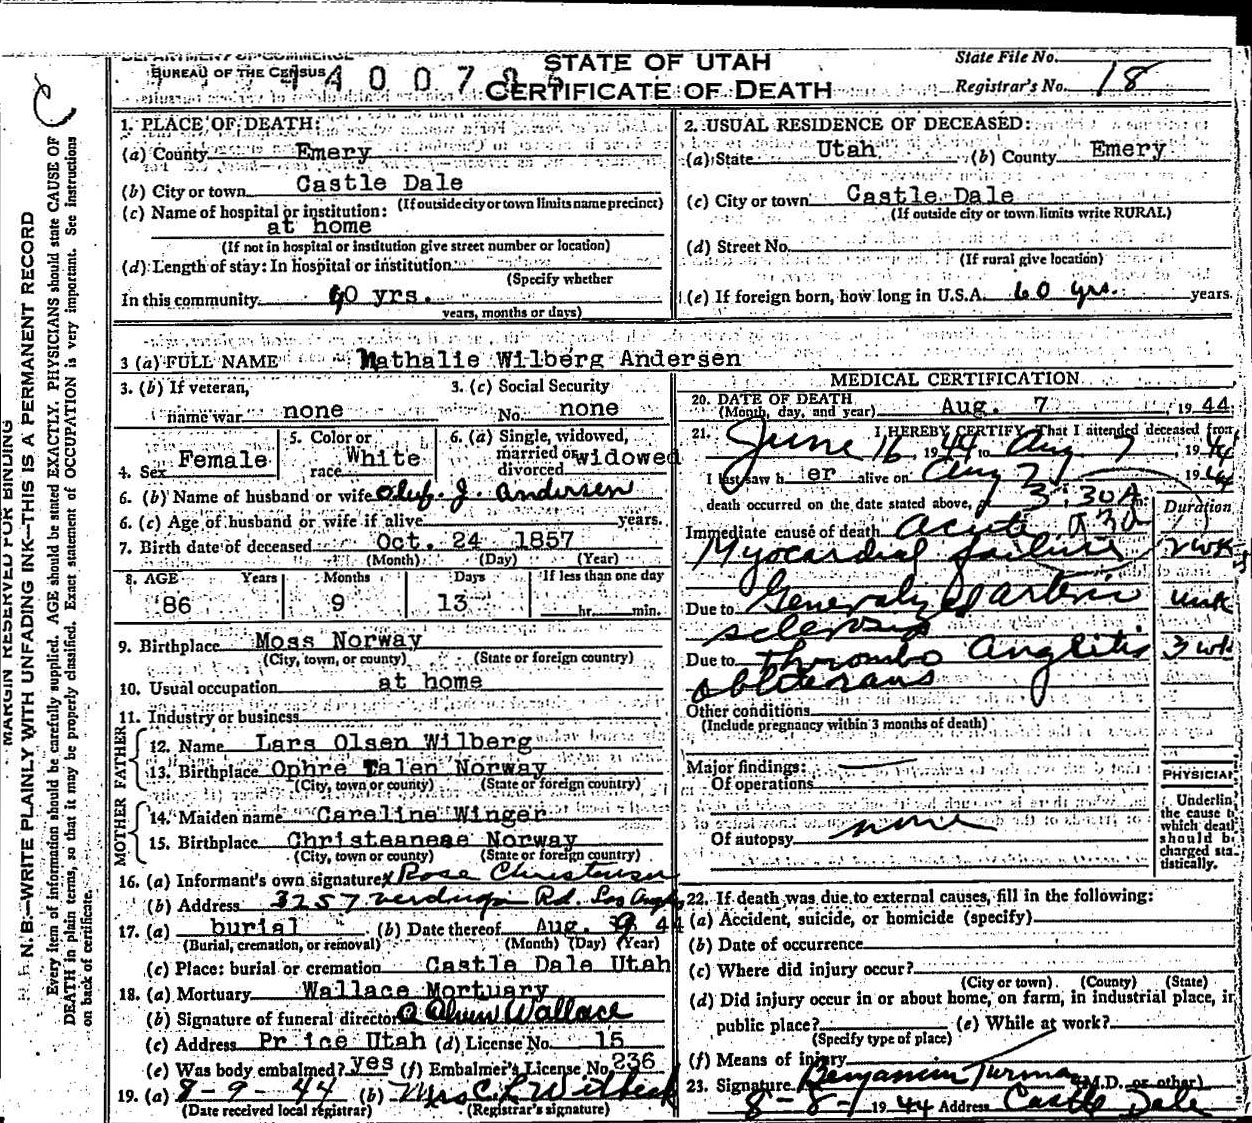 DEPARTMENT OF COMMERCE
BUREAU OF THE CENSUS
STATE OF UTAH
CERTIFICATE OF DEATH
State File No.
Registrar's No. 18
MARGIN RESERVED FOR BINDING
N. B.—WRITE PLAINLY WITH UNFADING INK—THIS IS A PERMANENT RECORD
Every item of information should be carefully supplied. AGE should be stated EXACTLY. PHYSICIANS should state CAUSE OF
DEATH in plain terms, so that it may be properly classified. Exact statement of OCCUPATION is very important. See Instructions
on back of certificate.
1. PLACE OF DEATH:
(a) County Emery
(b) City or town Castle Dale
(If outside city or town limits name precinct)
(c) Name of hospital or institution:
at home
(If not in hospital or institution give street number or location)
(d) Length of stay: In hospital or institution
(Specify whether
In this community 60 yrs.
years, months or days)
2. USUAL RESIDENCE OF DECEASED:
(a) State Utah (b) County Emery
(c) City or town Castle Dale
(If outside city or town limits write RURAL)
(d) Street No.
(If rural give location)
(e) If foreign born, how long in U.S.A. 60 yrs. years.
3 (a) FULL NAME Nathalie Wilberg Andersen
3. (b) If veteran, 3. (c) Social Security
name war none No. none
4. Sex Female
5. Color or race White
6. (a) Single, widowed, married or divorced widowed
6. (b) Name of husband or wife Oluf. J. Andersen
6. (c) Age of husband or wife if alive years.
7. Birth date of deceased Oct. 24 1857
(Month) (Day) (Year)
8. AGE Years Months Days If less than one day
86 9 13 hr. min.
9. Birthplace Moss Norway
(City, town, or county) (State or foreign country)
10. Usual occupation at home
11. Industry or business
FATHER
12. Name Lars Olsen Wilberg
13. Birthplace Ophre Talen Norway
(City, town or county) (State or foreign country)
MOTHER
14. Maiden name Careline Winger
15. Birthplace Christeanese Norway
(City, town or county) (State or foreign country)
16. (a) Informant's own signature x Rose Christensen
(b) Address 3257 Verdugo Rd. Los Angeles
17. (a) burial (b) Date thereof Aug. 9 44
(Burial, cremation, or removal) (Month) (Day) (Year)
(c) Place: burial or cremation Castle Dale Utah
18. (a) Mortuary Wallace Mortuary
(b) Signature of funeral director Wallace
(c) Address Price Utah (d) License No. 15
(e) Was body embalmed? yes (f) Embalmer's License No. 236
19. (a) 8-9-44 (b) Mrs C L Witbeck
(Date received local registrar) (Registrar's signature)
MEDICAL CERTIFICATION
20. DATE OF DEATH
(Month, day, and year) Aug. 7, 1944
21. I HEREBY CERTIFY That I attended deceased from
June 16 1944 to Aug 7, 1944
I last saw her alive on Aug 7 1944
death occurred on the date stated above, 3:30A m.
Duration
Immediate cause of death Acute
Myocardial failure 2 wk
Due to Generalized arterio unk
sclerosis
Due to thrombo Angiitis 3 wk
obliterans
Other conditions
(Include pregnancy within 3 months of death)
Major findings:
Of operations
Of autopsy none
PHYSICIAN
Underline
the cause to
which death
should be
charged sta-
tistically.
22. If death was due to external causes, fill in the following:
(a) Accident, suicide, or homicide (specify)
(b) Date of occurrence
(c) Where did injury occur?
(City or town) (County) (State)
(d) Did injury occur in or about home, on farm, in industrial place, in
public place? (e) While at work?
(Specify type of place)
(f) Means of injury
23. Signature Benjamin Turman (M.D. or other)
8-8-1944 Address Castle Dale